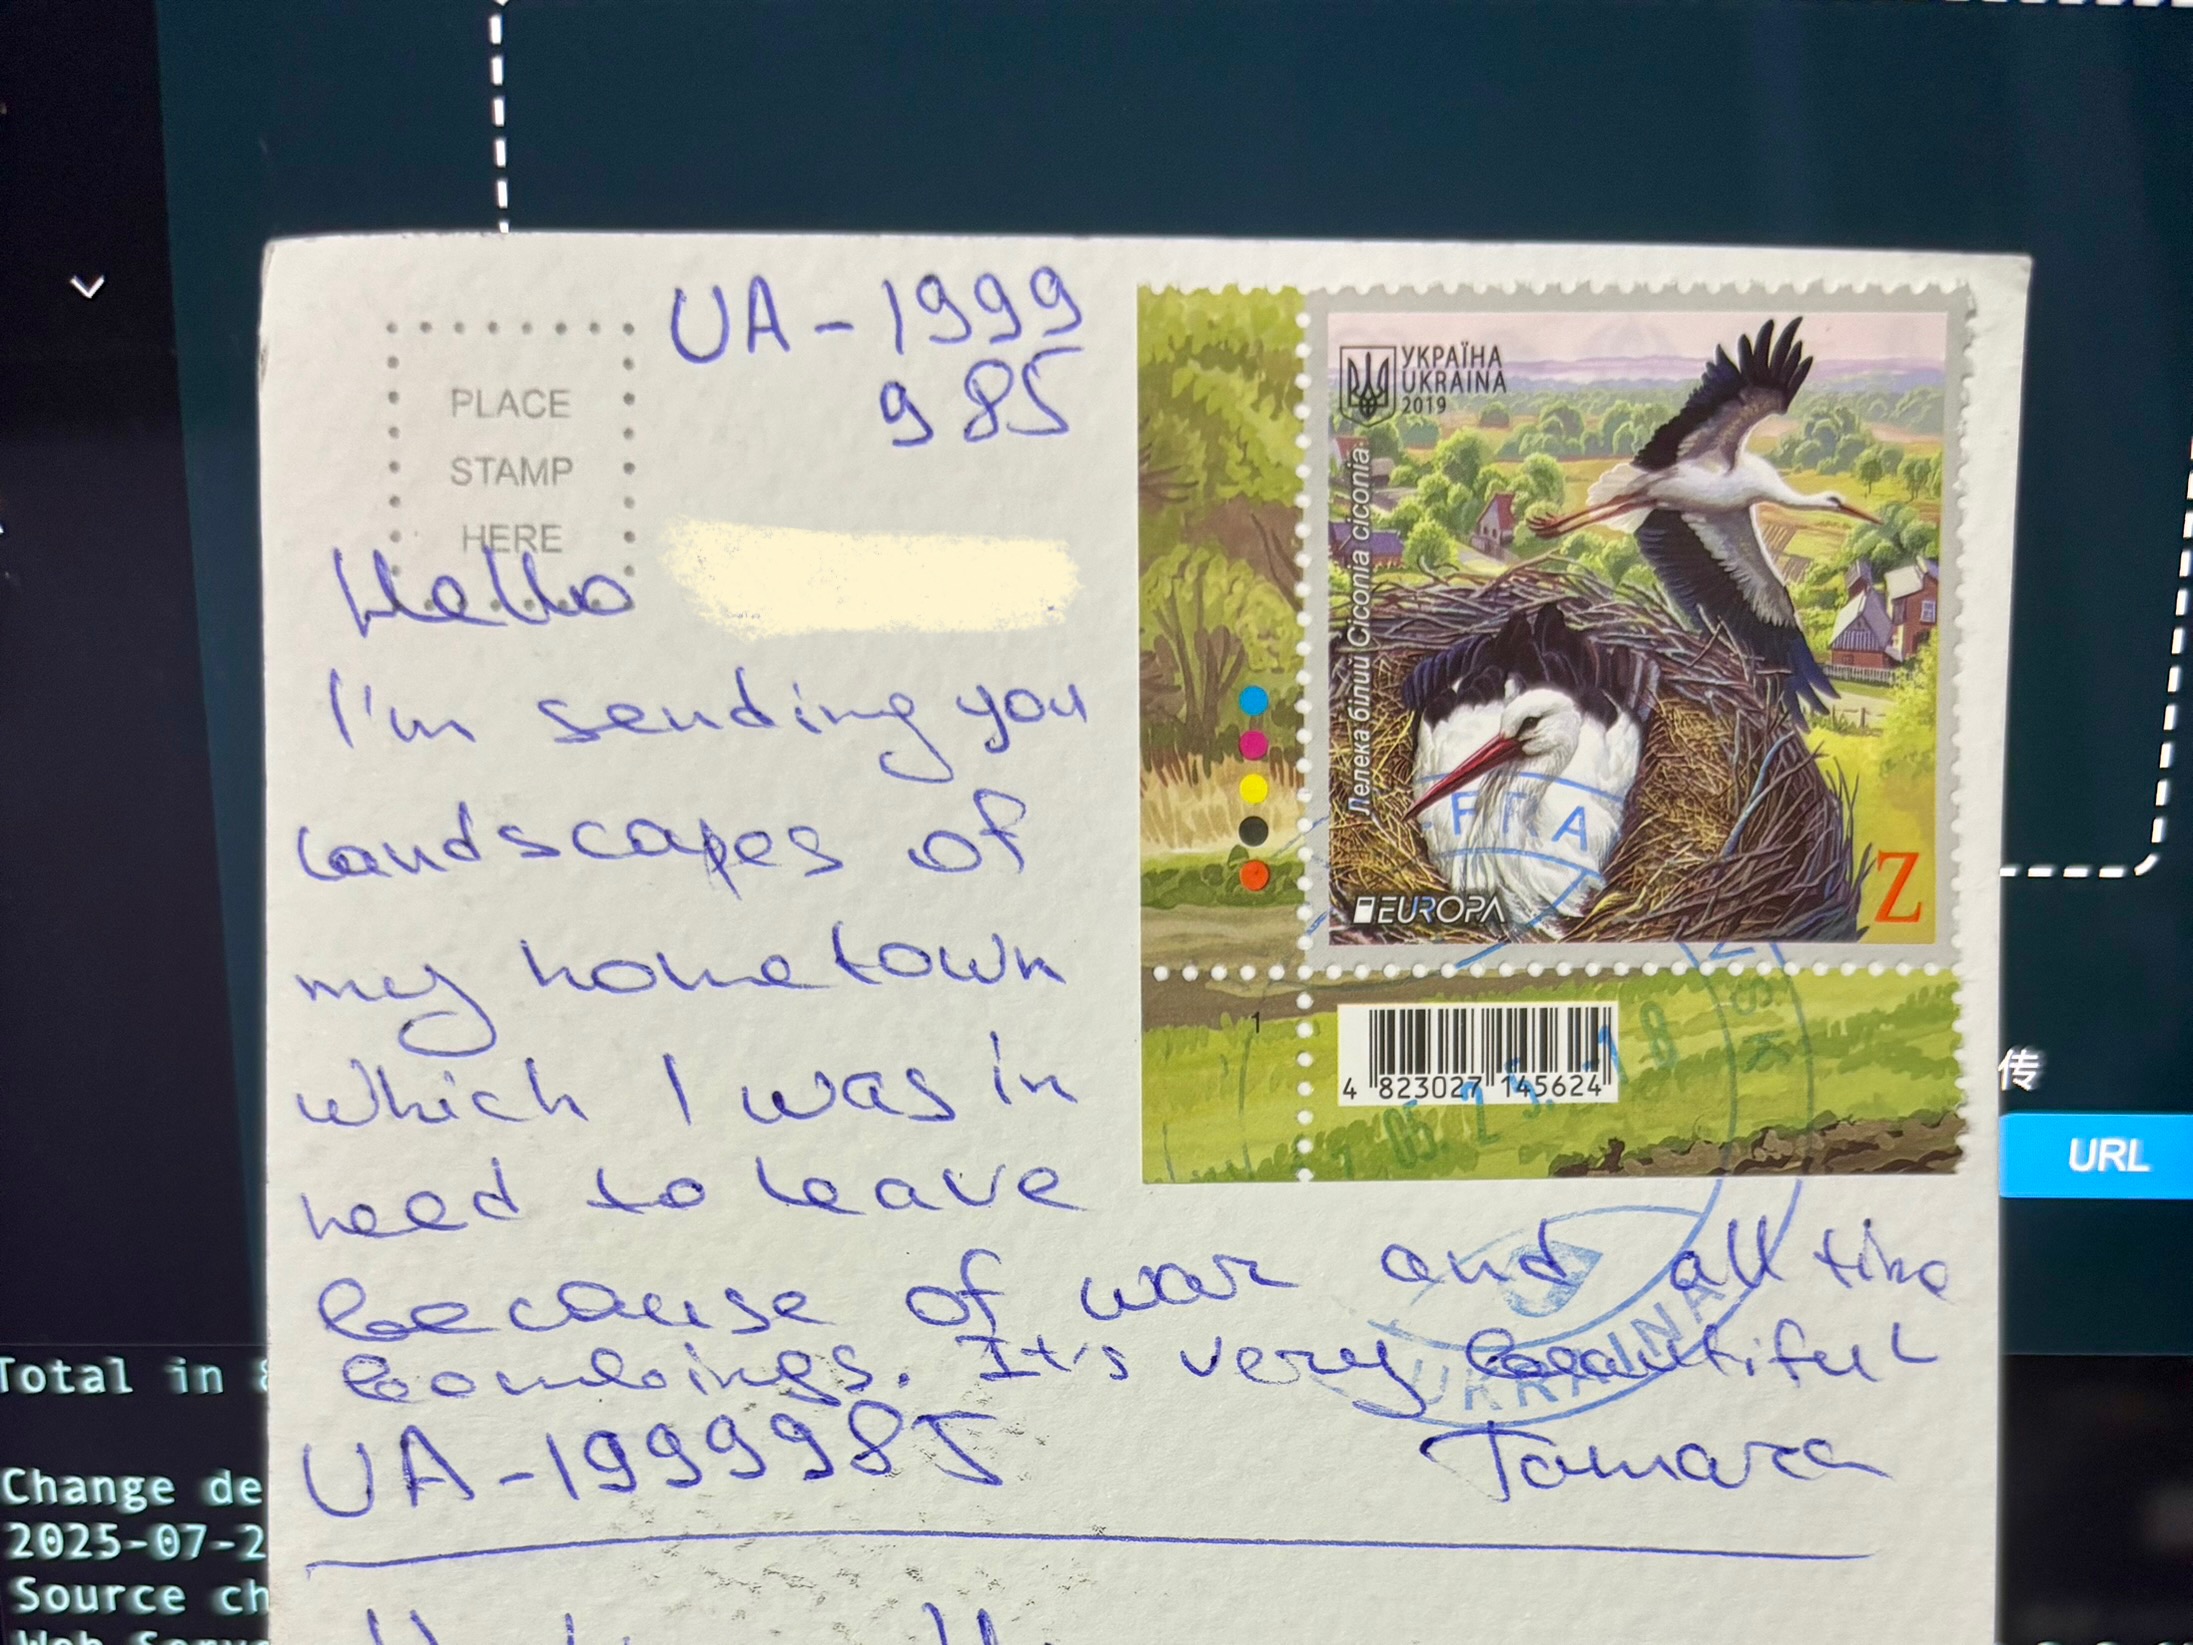 UA-1999
985
PLACE
STAMP
HERE
Hello
I'm sending you
landscapes of
my hometown
which I was in
need to leave
because of war and all this
bombings. It's very beautiful
UA-1999985
Tamara
УКРАЇНА
UKRAINA
2019
Лелека білий Ciconia ciconia
EUROPA
Z
1
4 823027 145624
UKRAINA
传
URL
Total in
Change de
2025-07-2
Source ch
Web Serv